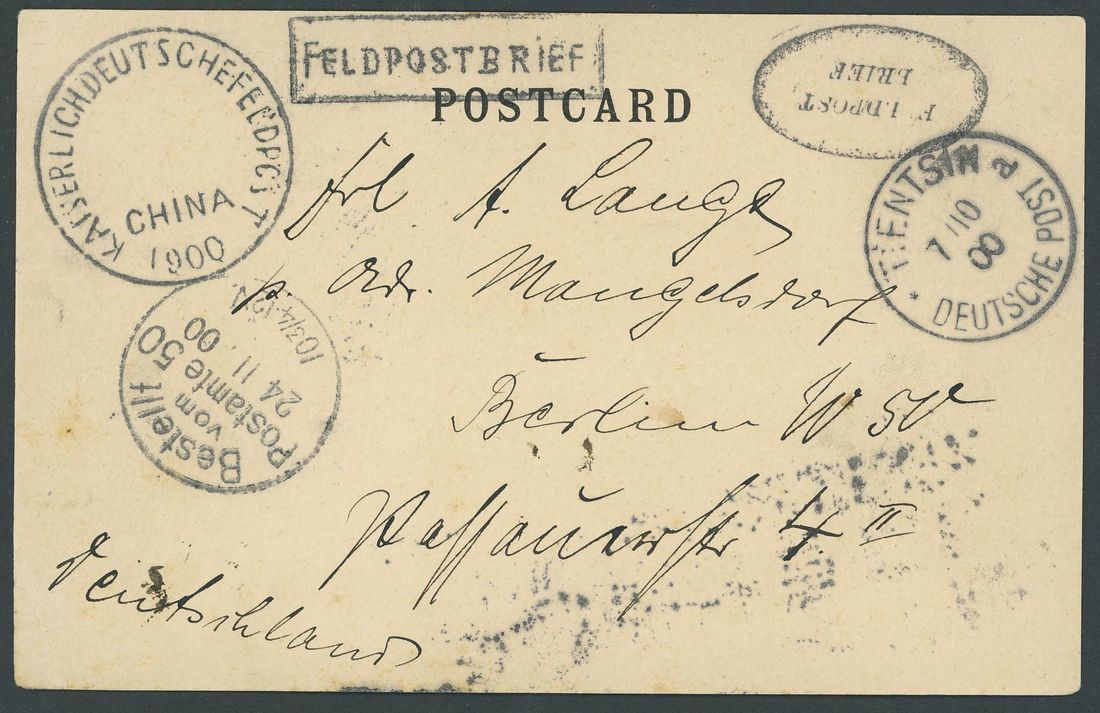 FELDPOSTBRIEF
POSTCARD
FELDPOST
BRIEF
KAISERLICHDEUTSCHEFELDPOST
CHINA
1900
TIENTSIN a
7/10
00
* DEUTSCHE POST *
Frl A. Lange
p Adr. Mangelsdorf
Berlin W 50
Passauerstr 4 II
Deutschland
Bestellt
vom
Postamte 50
24 11
00